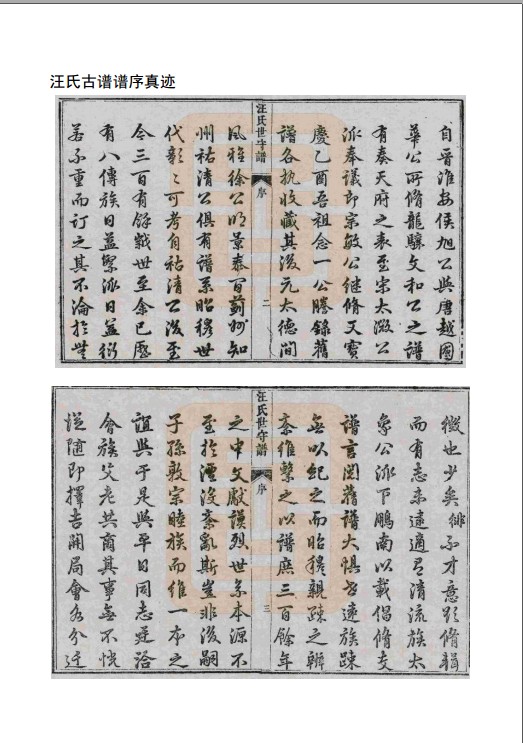 汪氏古谱谱序真迹
自晋淮安侯旭公與唐越國
華公所脩龍驤文和公之譜
有奏天府之表至宗太溦公
派奉議郎宗敏公继脩天寳
慶乙酉吾祖念一公謄錄舊
譜各执收藏其後元太德間
汪氏世守譜
序
二
風雅徐公明景泰百蓟州知
州祜清公俱有譜系昭穆世
代彰〻可考自祜清公後至
今三百有餘歲世至余已歷
有八傳族日益繁派日益衍
若不重而訂之其不淪於世
微也少矣緋不才意欲脩輯
而有志未逮適有清流族太
象公派下鵬南以載倡脩支
譜言閱舊譜大惧世逺族踈
無以紀之而昭穆親踈之辨
紊維繫之以譜歷三百餘年
汪氏世守譜
序
三
之中文獻謨烈世系本源不
至於湮没紊亂斯豈非後嗣
子孫敦宗睦族而维一本之
誼與于是與平日同志建洽
會族父老共商其事無不悦
從随即擇吉開局會各分迁